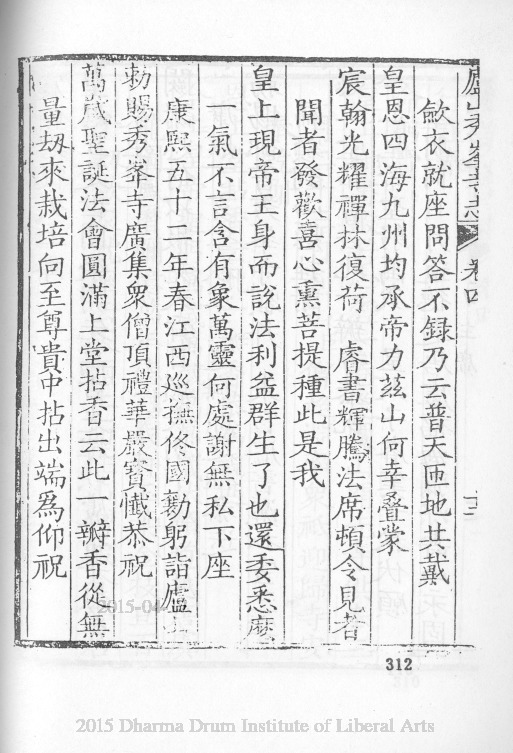 廬山秀峯寺志 卷四 十三
歛衣就座問答不錄乃云普天匝地共戴
皇恩四海九州均承帝力茲山何幸叠蒙
宸翰光耀禪林復荷 睿書輝騰法席頓令見者
聞者發歡喜心熏菩提種此是我
皇上現帝王身而說法利益群生了也還委悉麼
一氣不言含有象萬靈何處謝無私下座
康熙五十二年春江西巡撫佟國勷躬詣廬山
勅賜秀峯寺廣集衆僧頂禮華嚴寳懺恭祝
萬歲聖誕法會圓滿上堂拈香云此一瓣香從無
量刼來栽培向至尊貴中拈出端爲仰祝
312
2015-04-
2015 Dharma Drum Institute of Liberal Arts